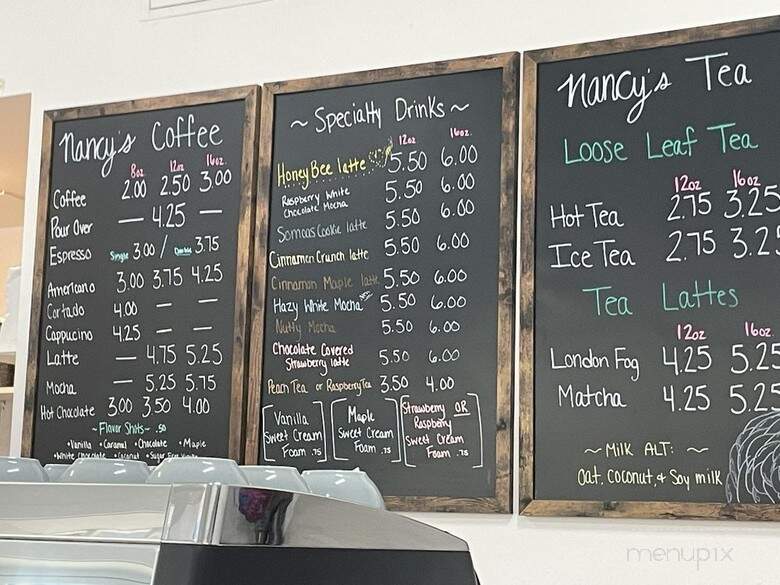 Nancy's Coffee
8oz. 12oz. 16oz.
Coffee 2.00 2.50 3.00
Pour Over — 4.25 —
Espresso Single 3.00 / Double 3.75
Americano 3.00 3.75 4.25
Cortado 4.00 — —
Cappucino 4.25 — —
Latte — 4.75 5.25
Mocha — 5.25 5.75
Hot Chocolate 3.00 3.50 4.00
~Flavor Shots~ .50
•Vanilla •Caramel •Chocolate •Maple
•White Chocolate •Coconut •Sugar Free Vanilla
~ Specialty Drinks ~
12oz. 16oz.
Honey Bee latte 5.50 6.00
Raspberry White Chocolate Mocha 5.50 6.00
Somoas Cookie latte 5.50 6.00
Cinnamon Crunch latte 5.50 6.00
Cinnamon Maple latte 5.50 6.00
Hazy White Mocha 5.50 6.00
Nutty Mocha 5.50 6.00
Chocolate Covered
Strawberry latte 5.50 6.00
Peach Tea or Raspberry Tea 3.50 4.00
Vanilla
Sweet Cream
Foam .75
Maple
Sweet Cream
Foam .75
Strawberry OR
Raspberry
Sweet Cream
Foam .75
Nancy's Tea
Loose Leaf Tea
12oz 16oz
Hot Tea 2.75 3.25
Ice Tea 2.75 3.25
Tea Lattes
12oz 16oz
London Fog 4.25 5.25
Matcha 4.25 5.25
~ Milk ALT: ~
Oat, Coconut, + Soy milk
menupix